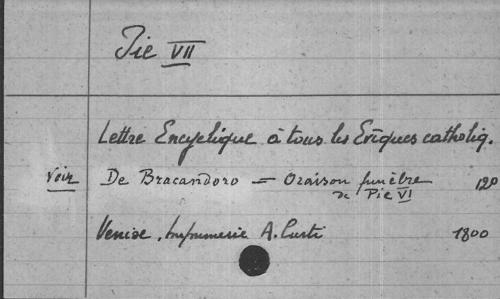 Pie VII
Lettre Encyclique à tous les Evêques catholiq.
Voir De Bracandoro = Oraison funèbre 120
de Pie VI
Venise, Imprimerie A. Curti 1800